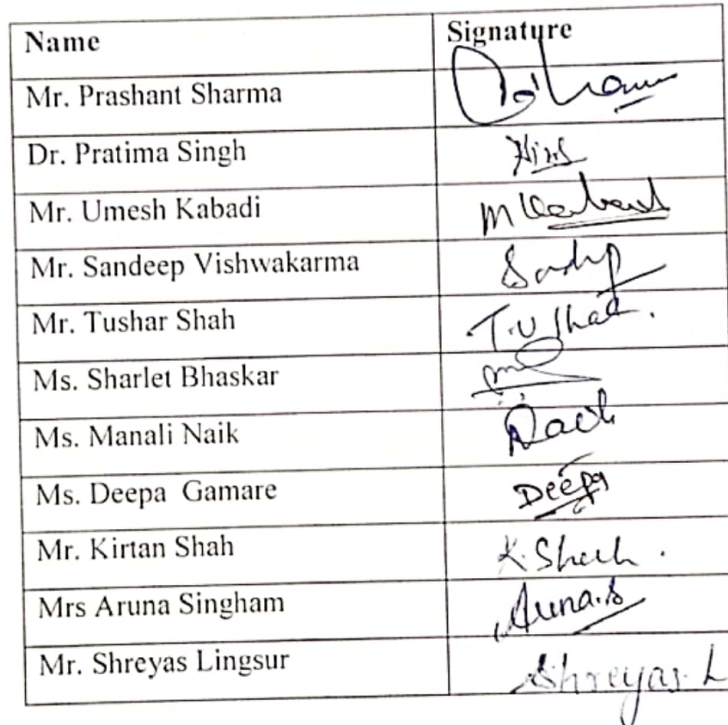 Name Signature
Mr. Prashant Sharma
Dr. Pratima Singh
Mr. Umesh Kabadi
Mr. Sandeep Vishwakarma
Mr. Tushar Shah T.U Shah.
Ms. Sharlet Bhaskar
Ms. Manali Naik
Ms. Deepa Gamare Deepa
Mr. Kirtan Shah K. Shah.
Mrs Aruna Singham Aruna.S
Mr. Shreyas Lingsur Shreyas. L